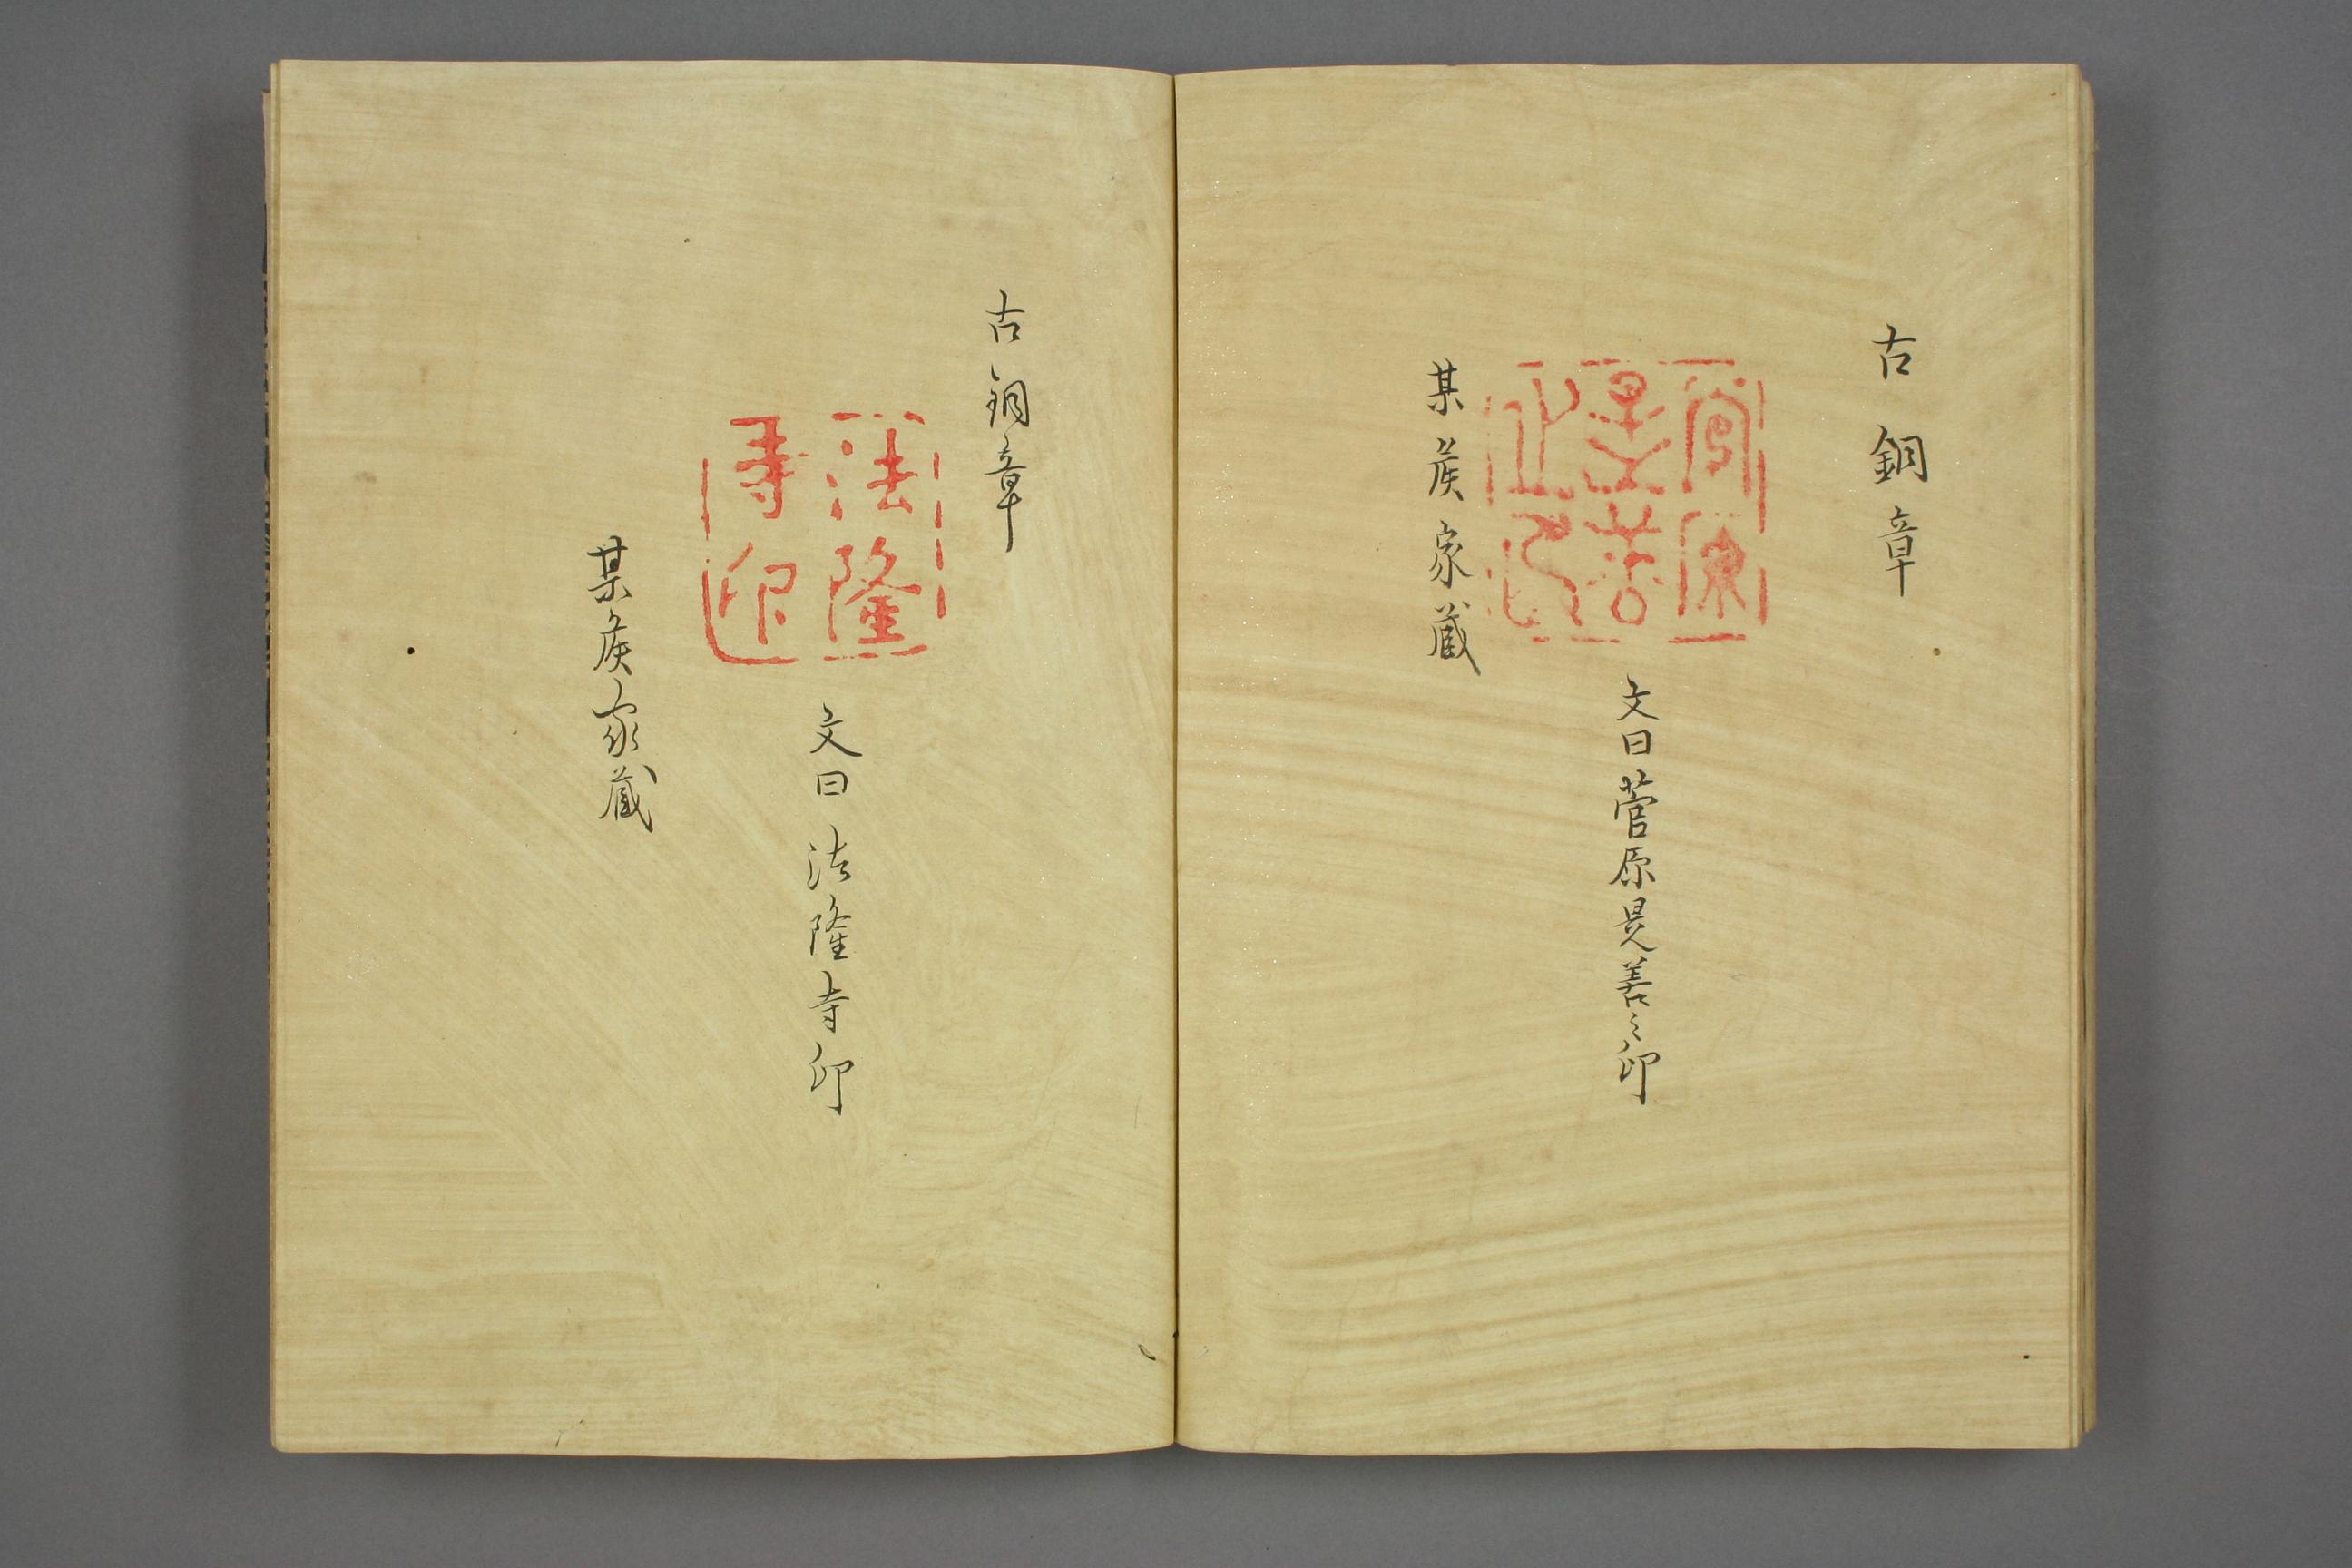 古銅章
菅原
是善
之印
文曰菅原是善之印
某矦家蔵
古銅章
法隆
寺印
文曰法隆寺印
某矦家蔵